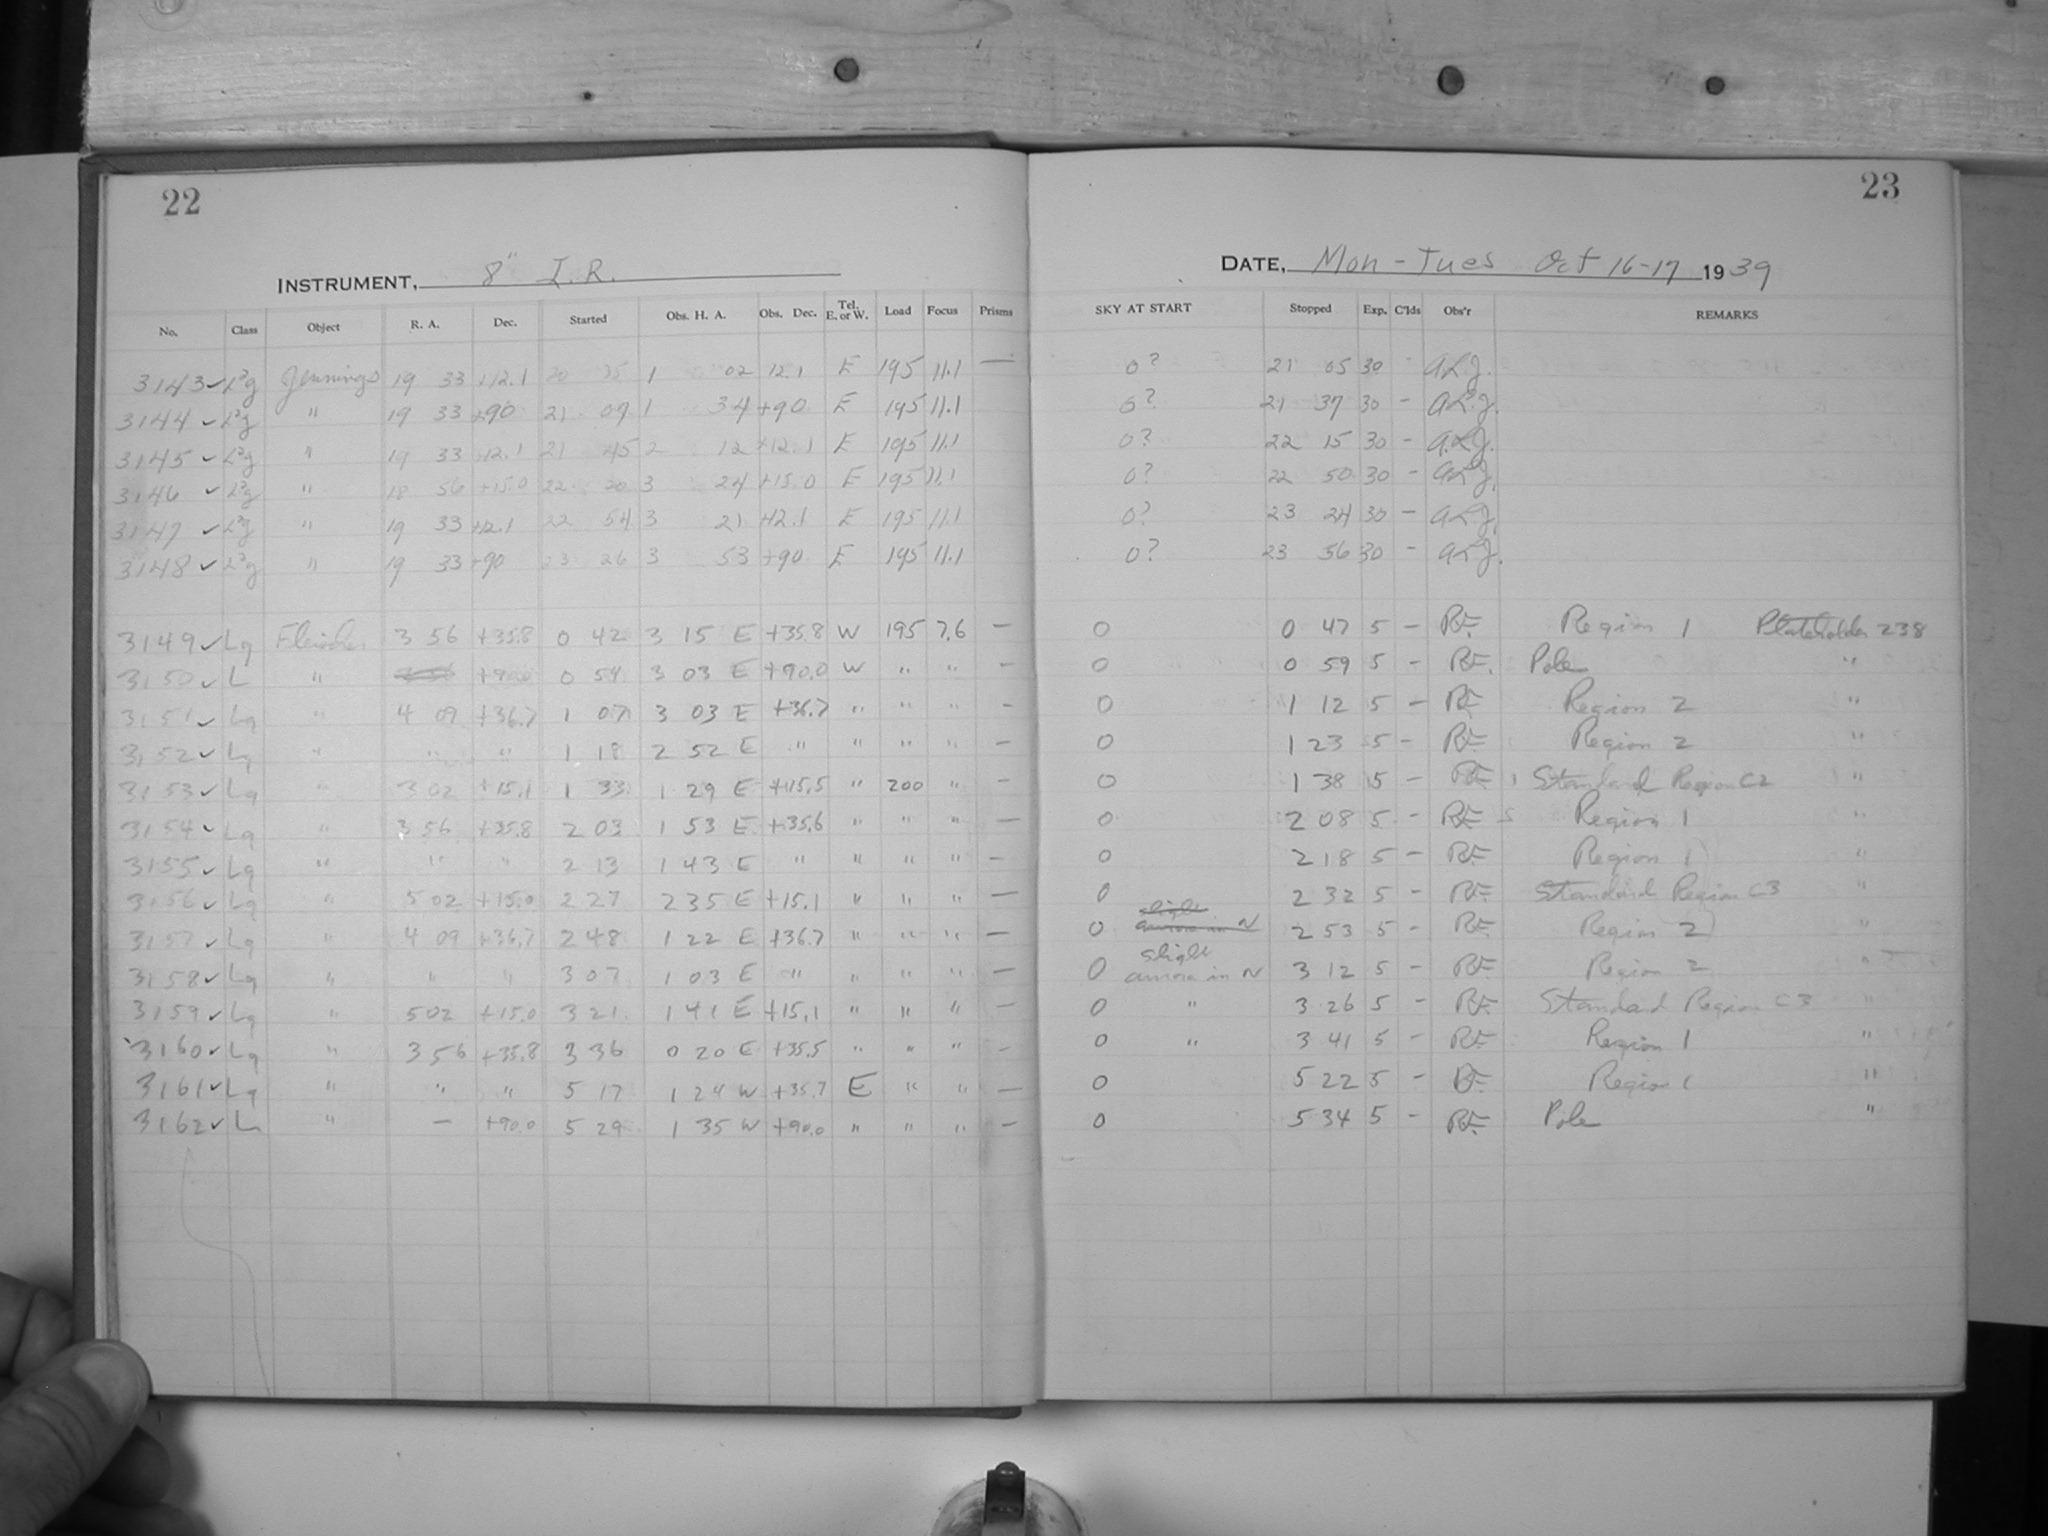 22
INSTRUMENT, 8" I.R.
No. Class Object R. A. Dec. Started Obs. H. A. Obs. Dec. Tel. E. or W. Load Focus Prisms
3143 ✓ L²g Jennings 19 33 +12.1 20 35 1 02 12.1 E 195 11.1 —
3144 ✓ L²g " 19 33 +90 21 07 1 34 +90 E 195 11.1
3145 ✓ L²g " 19 33 +12.1 21 45 2 12 +12.1 E 195 11.1
3146 ✓ L²g " 18 56 +15.0 22 20 3 24 +15.0 E 195 11.1
3147 ✓ L²g " 19 33 +12.1 22 54 3 21 +12.1 E 195 11.1
3148 ✓ L²g " 19 33 +90 23 26 3 53 +90 E 195 11.1
3149 ✓ Lg Fleischer 3 56 +35.8 0 42 3 15 E +35.8 W 195 7.6 —
3150 ✓ L " +90.0 0 54 3 03 E +90.0 W " " —
3151 ✓ Lg " 4 09 +36.7 1 07 3 03 E +36.7 " " " —
3152 ✓ Lg " " " 1 18 2 52 E " " " " —
3153 ✓ Lg " 3 02 +15.1 1 33 1 29 E +15.5 " 200 " —
3154 ✓ Lg " 3 56 +35.8 2 03 1 53 E +35.6 " " " —
3155 ✓ Lg " " " 2 13 1 43 E " " " " —
3156 ✓ Lg " 5 02 +15.0 2 27 2 35 E +15.1 " " " —
3157 ✓ Lg " 4 09 +36.7 2 48 1 22 E +36.7 " " " —
3158 ✓ Lg " " " 3 07 1 03 E " " " " —
3159 ✓ Lg " 5 02 +15.0 3 21 1 41 E +15.1 " " " —
3160 ✓ Lg " 3 56 +35.8 3 36 0 20 E +35.5 " " " —
3161 ✓ Lg " " " 5 17 1 24 W +35.7 E " " —
3162 ✓ L " — +90.0 5 29 1 35 W +90.0 " " " —
23
DATE, Mon - Tues Oct 16-17 1939
SKY AT START Stopped Exp. C'lds Obs'r REMARKS
0? 21 05 30 - A.L.J.
0? 21 37 30 - A.L.J.
0? 22 15 30 - A.L.J.
0? 22 50 30 - A.L.J.
0? 23 24 30 - A.L.J.
0? 23 56 30 - A.L.J.
0 0 47 5 - RF Region 1 Plateholder 238
0 0 59 5 - RF. Pole "
0 1 12 5 - RF Region 2 "
0 1 23 5 - RF Region 2 "
0 1 38 5 - RF Standard Region C2 "
0 2 08 5 - RF Region 1 "
0 2 18 5 - RF Region 1 "
0 2 32 5 - RF Standard Region C3 "
0 slight aurora in N 2 53 5 - RF Region 2 "
0 slight aurora in N 3 12 5 - RF Region 2 "
0 " 3 26 5 - RF Standard Region C3 "
0 " 3 41 5 - RF Region 1 "
0 5 22 5 - RF Region 1 "
0 5 34 5 - RF Pole "